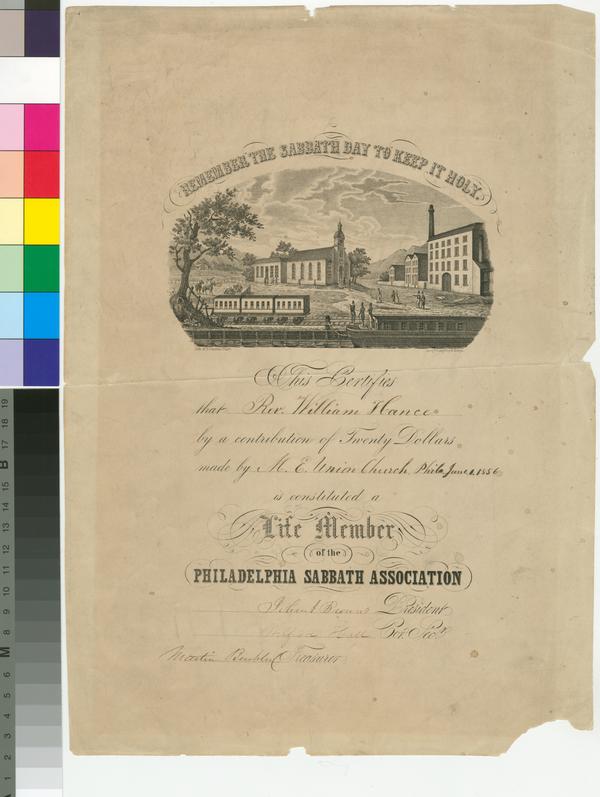 REMEMBER THE SABBATH DAY TO KEEP IT HOLY.
This Certifies
that Rev. William Hance
by a contribution of Twenty Dollars
made by M. E. Union Church, Phila June 1. 1856
is constituted a
Life Member
of the
PHILADELPHIA SABBATH ASSOCIATION
President
Hall
Martin Treasurer
19
18
17
B
16
15
14
13
12
11
10
9
8
M
7
6
5
4
3
2
1
A